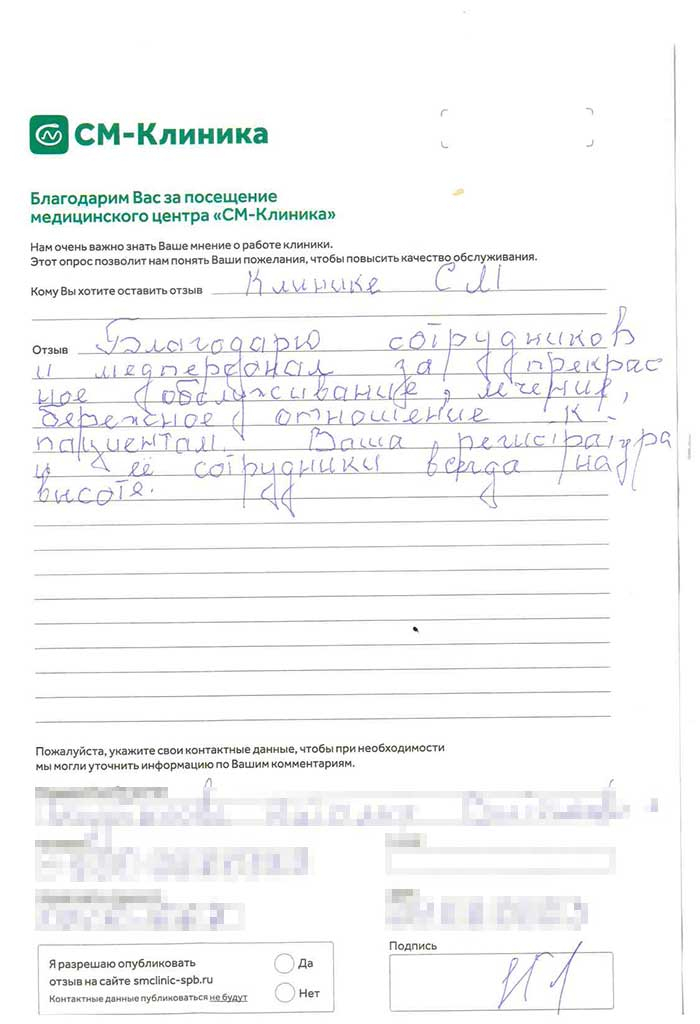 СМ-Клиника
Благодарим Вас за посещение
медицинского центра «СМ-Клиника»
Нам очень важно знать Ваше мнение о работе клиники.
Этот опрос позволит нам понять Ваши пожелания, чтобы повысить качество обслуживания.
Кому Вы хотите оставить отзыв Клинике СМ
Отзыв Благодарю сотрудников
и медперсонал за прекрас
ное обслуживание, лечение,
бережное отношение к
пациентам. Ваша регистратура
и её сотрудники всегда на
высоте.
Пожалуйста, укажите свои контактные данные, чтобы при необходимости
мы могли уточнить информацию по Вашим комментариям.
Я разрешаю опубликовать
отзыв на сайте smclinic-spb.ru
Контактные данные публиковаться не будут
Да
Нет
Подпись